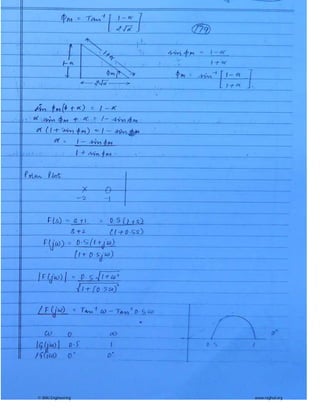 φm = Tan⁻¹ [ 1-α / 2√α ]
179
1-α
1+α
φm
2√α
sin φm = 1-α / 1+α
φm = sin⁻¹ [ 1-α / 1+α ]
sin φm (1+α) = 1-α
α sin φm + α = 1 - sin φm
α (1 + sin φm) = 1 - sin φm
α = 1 - sin φm / 1 + sin φm
Polar Plot
× O
-2 -1
F(s) = s+1 / s+2 = 0.5 (1+s) / (1+0.5s)
F(jω) = 0.5 (1+jω) / (1+0.5jω)
|F(jω)| = 0.5 √1+ω² / √1+(0.5ω)²
∠F(jω) = Tan⁻¹ ω - Tan⁻¹ 0.5ω
ω 0 ∞
|G(jω)| 0.5 1
∠G(jω) 0° 0°
0.5 1 0°